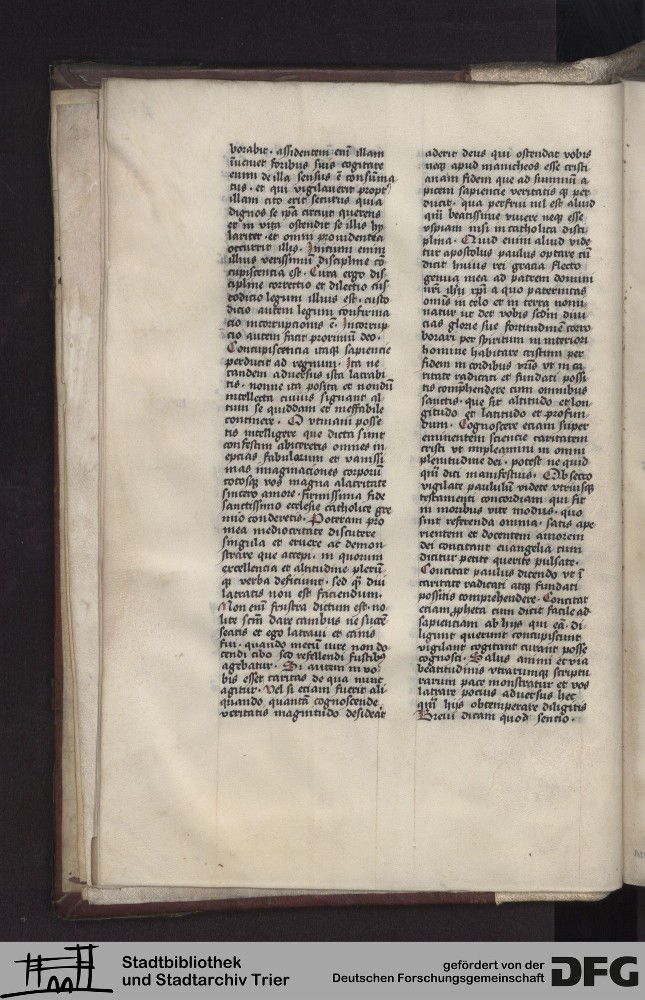 borabit. assidentem eni illam
inueniet foribus suis cogitare
enim de illa sensus e consuma
tus. et qui vigilauerit propt
illam cito erit securus quia
dignos se ipa circuit querens
et in viis ostendit se illis hy
lariter. et omni prouidentea
occurrit illis. Inicium enim
illius verissimu discipline co
cupiscentia est. Cura ergo dis
cipline correctio et dilectio cus
todicio legum illius est. custo
dicio autem legum confirma
cio incorrupcionis e. Incorrup
cio autem facit proximum deo.
Concupiscencia itaq sapiencie
perducit ad regnum. Ita ne
tandem aduersus ista latrabi
tis. nonne ita posita et nondu
intellecta cuiuis signant al
tum se quiddam et ineffabile
continere. O vtinam posse
tis intelligere que dicta sunt
confestim abiceretis omnes in
epcias fabularum et vanissi
mas imaginaciones corporu
totosq vos magna alacritate
sincero amore. firmissima fide
sanctissimo ecclesie catholice gre
mio conderetis. Poteram pro
mea mediocritate discutere
singula et eruere ac demon
strare que accepi. in quorum
excellencia et altitudine pleru
q verba deficiunt. sed q diu
latratis non est faciendum.
Non eni frustra dictum est. no
lite scm dare canibus ne succen
seatis et ego latraui et canis
fui. quando mecu iure non do
cendi cibo sed refellendi fustibus
agebatur. Si autem in vo
bis esset caritas de qua nunc
agitur. vel si eciam fuerit ali
quando. quanta cognoscende
veritatis magnitudo desiderat
aderit deus qui ostendat vobis
neq apud manicheos esse cristi
anam fidem que ad summu a
picem sapiencie veritatis q per
ducit. qua perfrui nil est aliud
qm beatissime viuere neq esse
vspiam nisi in catholica disci
plina. Quid enim aliud vide
tur apostolus paulus optare cu
dicit huius rei gracia flecto
genua mea ad patrem domini
nri ihu xpi a quo paternitas
omnis in celo et in terra nomi
natur ut det vobis scdm diui
cias glorie sue fortitudinem corro
borari per spiritum in interiori
homine habitare cristum per
fidem in cordibus vris vt in ca
ritate radicati et fundati possi
tis comprehendere cum omnibus
sanctis. que sit altitudo et lon
gitudo et latitudo et profun
dum. Cognoscere eciam super
eminentem sciencie caritatem
cristi vt impleamini in omni
plenitudine dei. potest ne quid
qm dici manifestius. Obsecro
vigilate paululu videte vtriusq
testamenti concordiam qui sit
in moribus vite modus. quo
sint referenda omnia. satis ape
rientem et docentem amorem
dei concitant euangelia cum
dicitur petite querite pulsate.
Concitat paulus dicendo vt i
caritate radicati atq fundati
possitis comprehendere. Concitat
eciam ppheta cum dicit facile ad
sapienciam ab hijs qui ea. di
ligunt querunt concupiscunt
vigilant cogitant curant posse
cognosci. Salus animi et via
beatitudinis vtrarumq scriptu
rarum pace monstratur et vos
latrare pocius aduersus hec
qm hijs obtemperare diligitis
Breui dicam quod sentio.
Stadtbibliothek
und Stadtarchiv Trier
gefördert von der
Deutschen Forschungsgemeinschaft
DFG